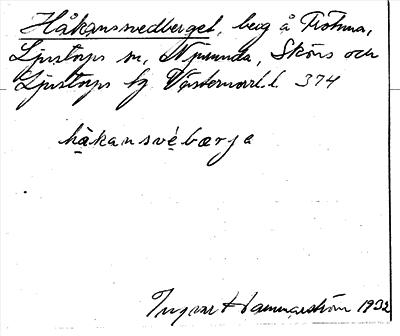 Håkansvedberget, berg å Fröhna,
Ljustorps sn, Njurunda, Sköns och
Ljustorps tg. Västernorrl. l. 374
håkansvébærja
Ingvar Hammarström 1932